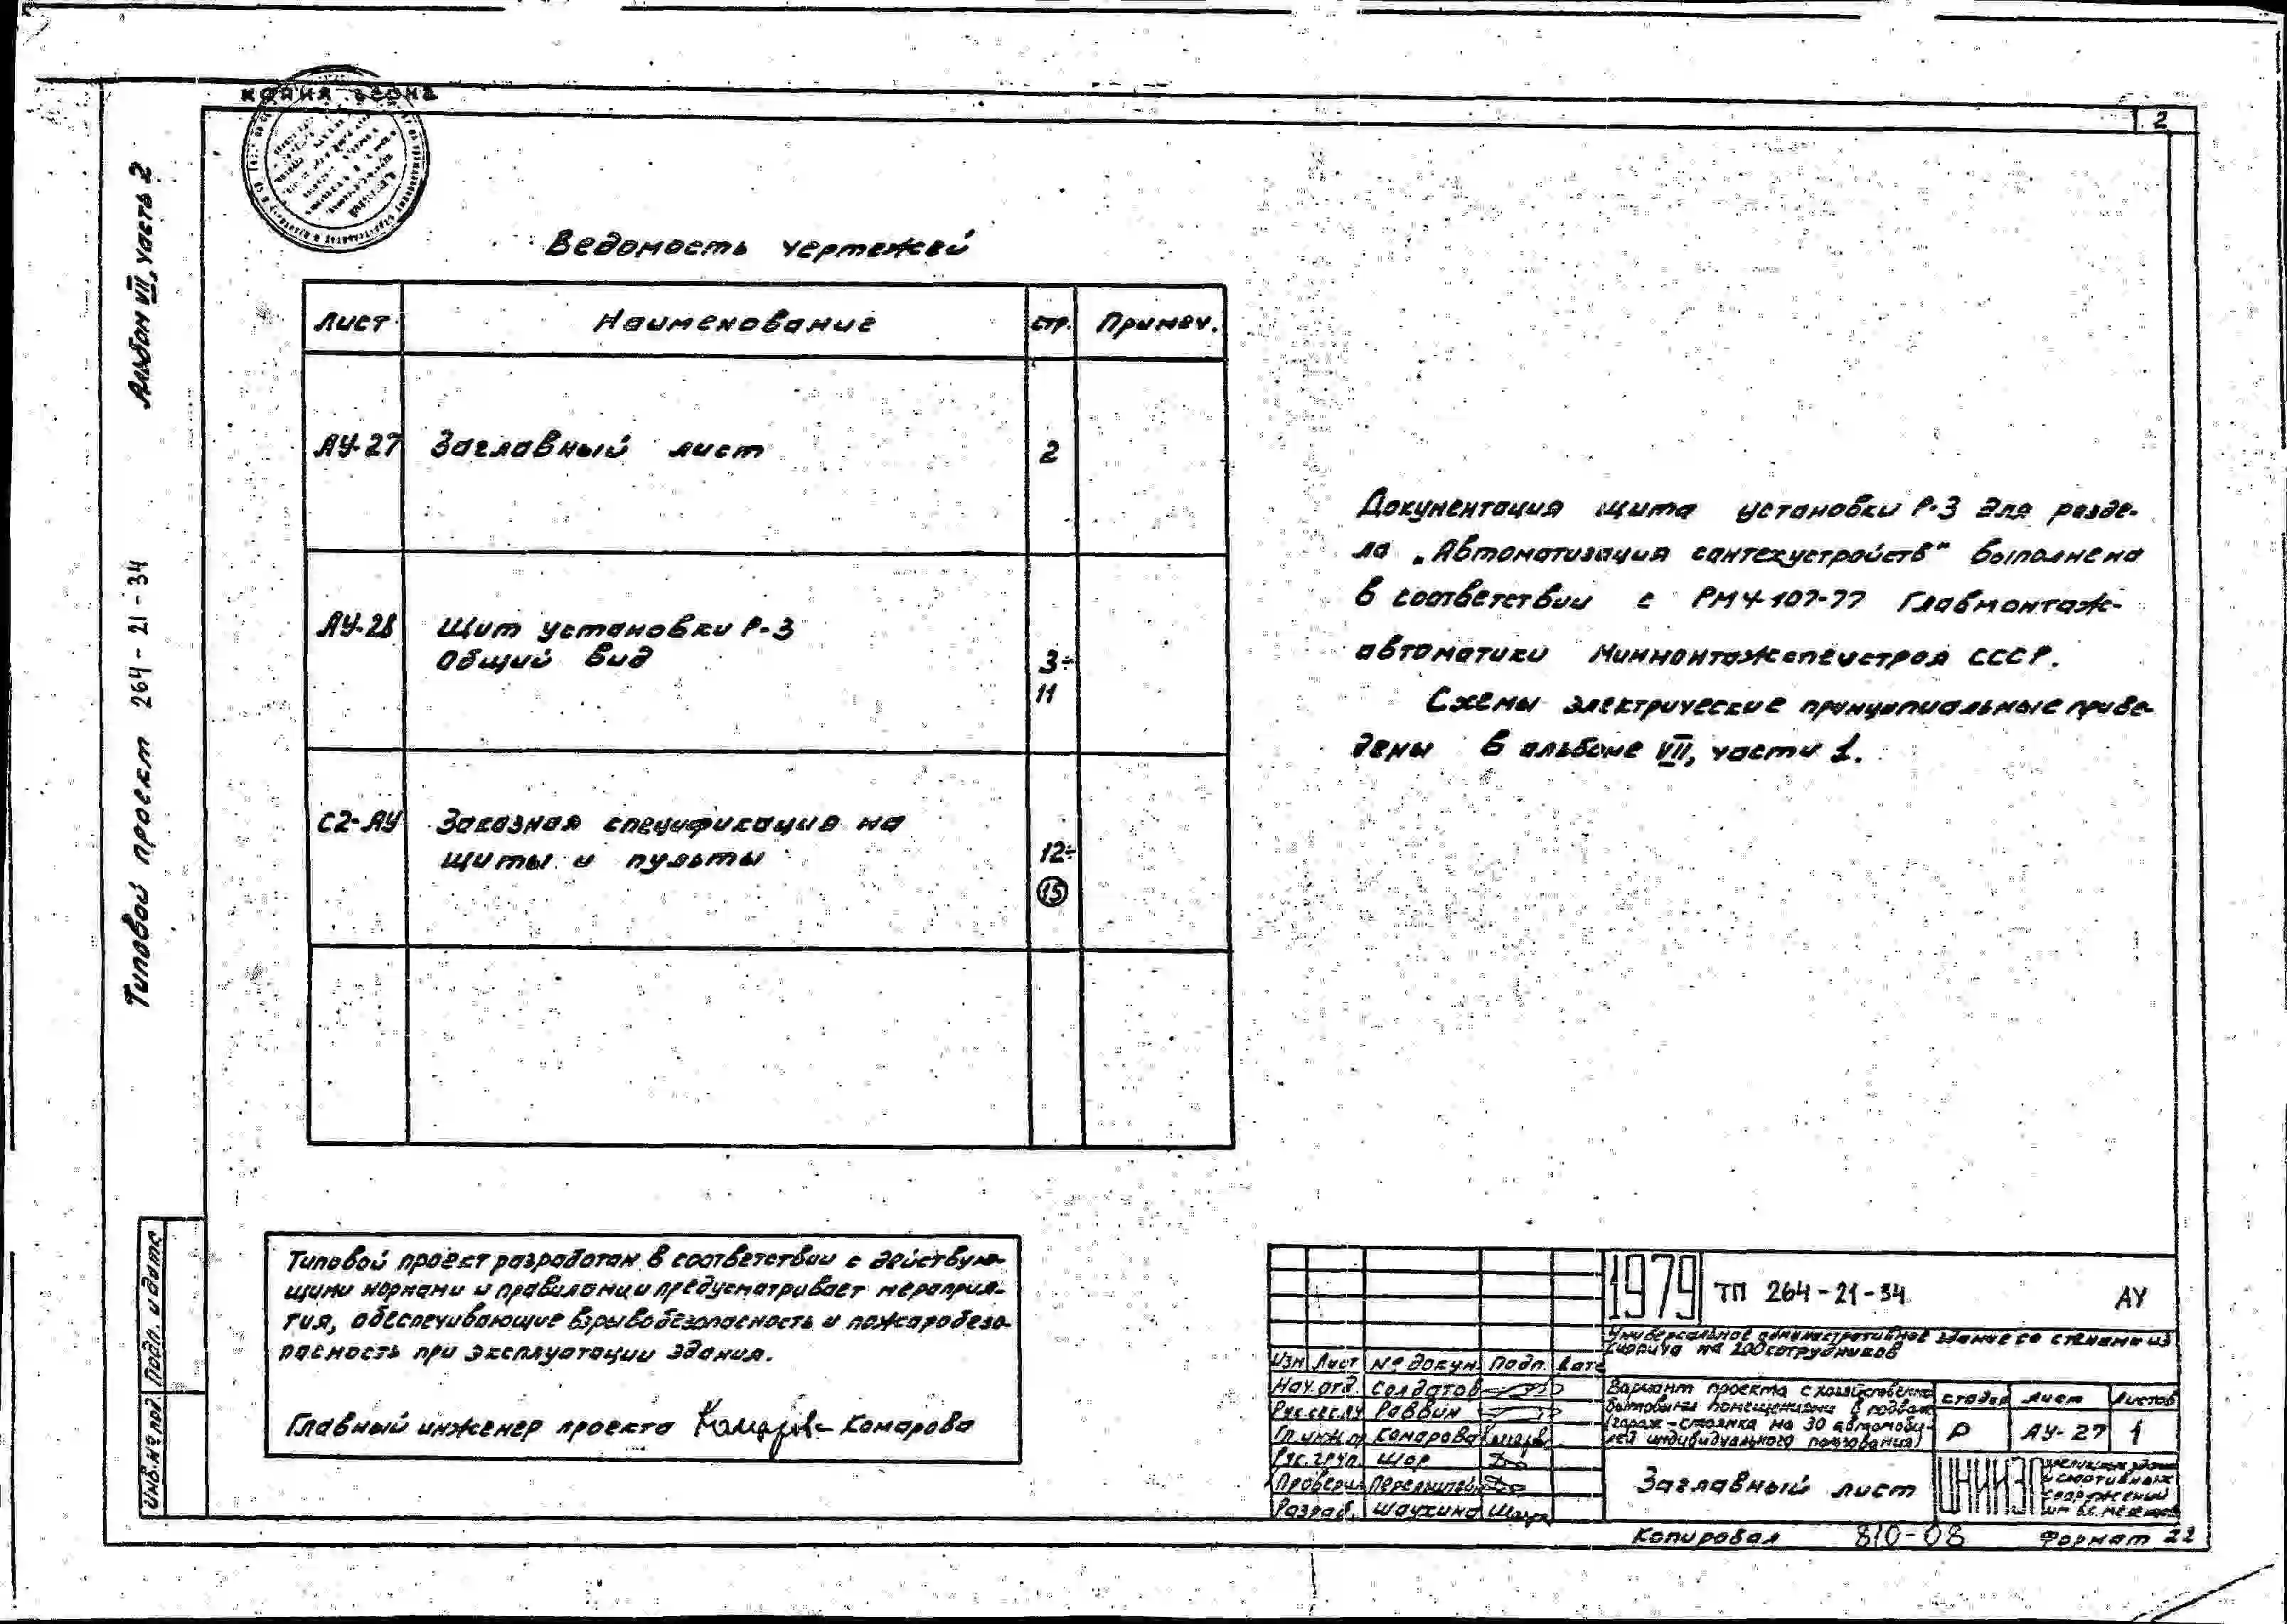 КОПИЯ ВЕРНА
2
Альбом VII, часть 2
Типовой проект 264-21-34
Ведомость чертежей
Лист Наименование стр. Примеч.
АУ-27 Заглавный лист 2
АУ-28 Щит установки Р-3 3÷
Общий вид 11
С2-АУ Заказная спецификация на 12÷
щиты и пульты 15
Документация щита установки Р-3 для разде-
ла „Автоматизация сантехустройств" выполнена
в соответствии с РМ4-107-77 Главмонтаж-
автоматики Минмонтажспецстроя СССР.
Схемы электрические принципиальные приве-
дены в альбоме VII, части 1.
Типовой проект разработан в соответствии с действую-
щими нормами и правилами и предусматривает мероприя-
тия, обеспечивающие взрывобезопасность и пожаробезо-
пасность при эксплуатации здания.
Главный инженер проекта Комарова
Инв.№ подл. Подп. и дата
1979 ТП 264-21-34 АУ
Универсальное административное здание со стенами из
кирпича на 200 сотрудников
Изм Лист № докум. Подп. Дата
Нач. отд. Солдатов
Рук.сек.АУ Раввин
Гл.инж.пр Комарова
Рук.груп. Шор
Проверил
Разраб. Шаухина
Вариант проекта с хозяйственно
бытовыми помещениями в подвале
(гараж-стоянка на 30 автомоби-
лей индивидуального пользования)
стадия Лист Листов
Р АУ-27 1
Заглавный лист
ЦНИИЭП зрелищных зданий
и спортивных
сооружений
им. Б.С. Мезенцева
Копировал 810-08 Формат 22